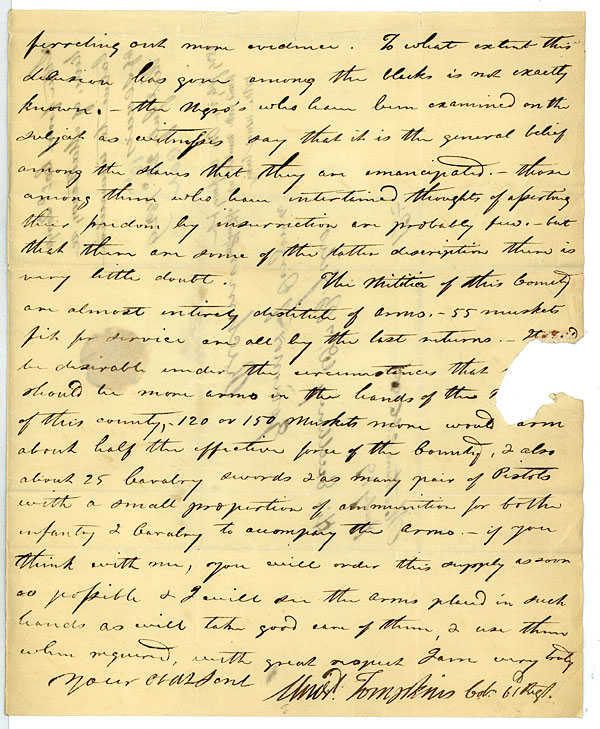 ferreting out more evidence. To what extent this
delusion has gone among the blacks is not exactly
known. – the Negro's who have been examined on the
subject as witnesses say that it is the general belief
among the slaves that they are emancipated. – those
among them who have intertained thoughts of asserting
their freedom by insurrection are probably few. – but
that there are some of the latter description there is
very little doubt. The Militia of this County
are almost intirely distitute of arms. – 55 muskets
fit for service are all by the last returns. –
be desirable under the circumstances that
should be more arms in the hands of the
of this county, 120 or 150 Muskets more would arm
about half the effective force of the County, & also
about 25 Cavalry swords & as many pair of Pistols
with a small proportion of ammunition for both
infantry & Cavalry to accompany the arms. – if you
think with me, you will order this supply as soon
as possible & I will see the arms placed in such
hands as will take good care of them, & use them
when required, with great respect I am very truly
your Obdt Servt Tompkins Col. 61 Regt.